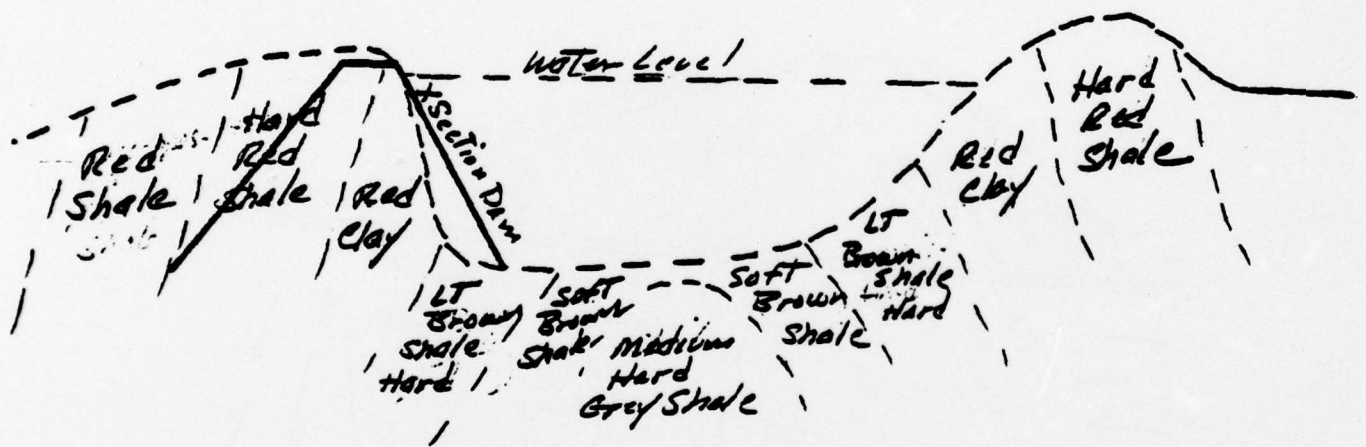 Water Level
Red
Shale
Hard
Red
Shale
Red
Clay
X Section Dam
LT
Brown
Shale
Hard
Soft
Brown
Shale
Medium
Hard
Grey Shale
Soft
Brown
Shale
LT
Brown
Shale
Hard
Red
Clay
Hard
Red
Shale